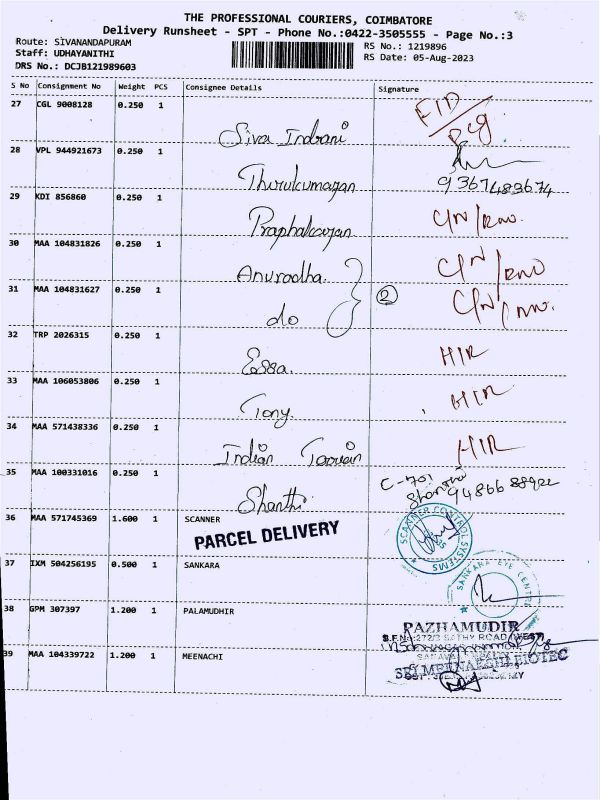 THE PROFESSIONAL COURIERS, COIMBATORE
Delivery Runsheet - SPT - Phone No.:0422-3505555 - Page No.:3
Route: SIVANANDAPURAM RS No.: 1219896
Staff: UDHAYANITHI RS Date: 05-Aug-2023
DRS No.: DCJB121989603
S No Consignment No Weight PCS Consignee Details Signature
27 CGL 9008128 0.250 1 Siva Indrani
28 VPL 944921673 0.250 1 Thirukumaran 9367483674
29 KDI 856860 0.250 1 Praphakaran C/N/
30 MAA 104831826 0.250 1 Anuradha C/N/
31 MAA 104831627 0.250 1 do 2 C/N/
32 TRP 2026315 0.250 1 Essa. HIR
33 MAA 106053806 0.250 1 Tony. HIR
34 MAA 571438336 0.250 1 Indian HIR
35 MAA 100331016 0.250 1 Shanthi C-701
36 MAA 571745369 1.600 1 SCANNER SCANNER CONTROL SYSTEMS
PARCEL DELIVERY
37 IXM 504256195 0.500 1 SANKARA SANKARA EYE CENTRE
38 GPM 307397 1.200 1 PALAMUDHIR PAZHAMUDIR
S.F.No.:272/3 SATHY ROAD (WEST)
39 MAA 104339722 1.200 1 MEENACHI SRI MEENAKSHI BIOTEC